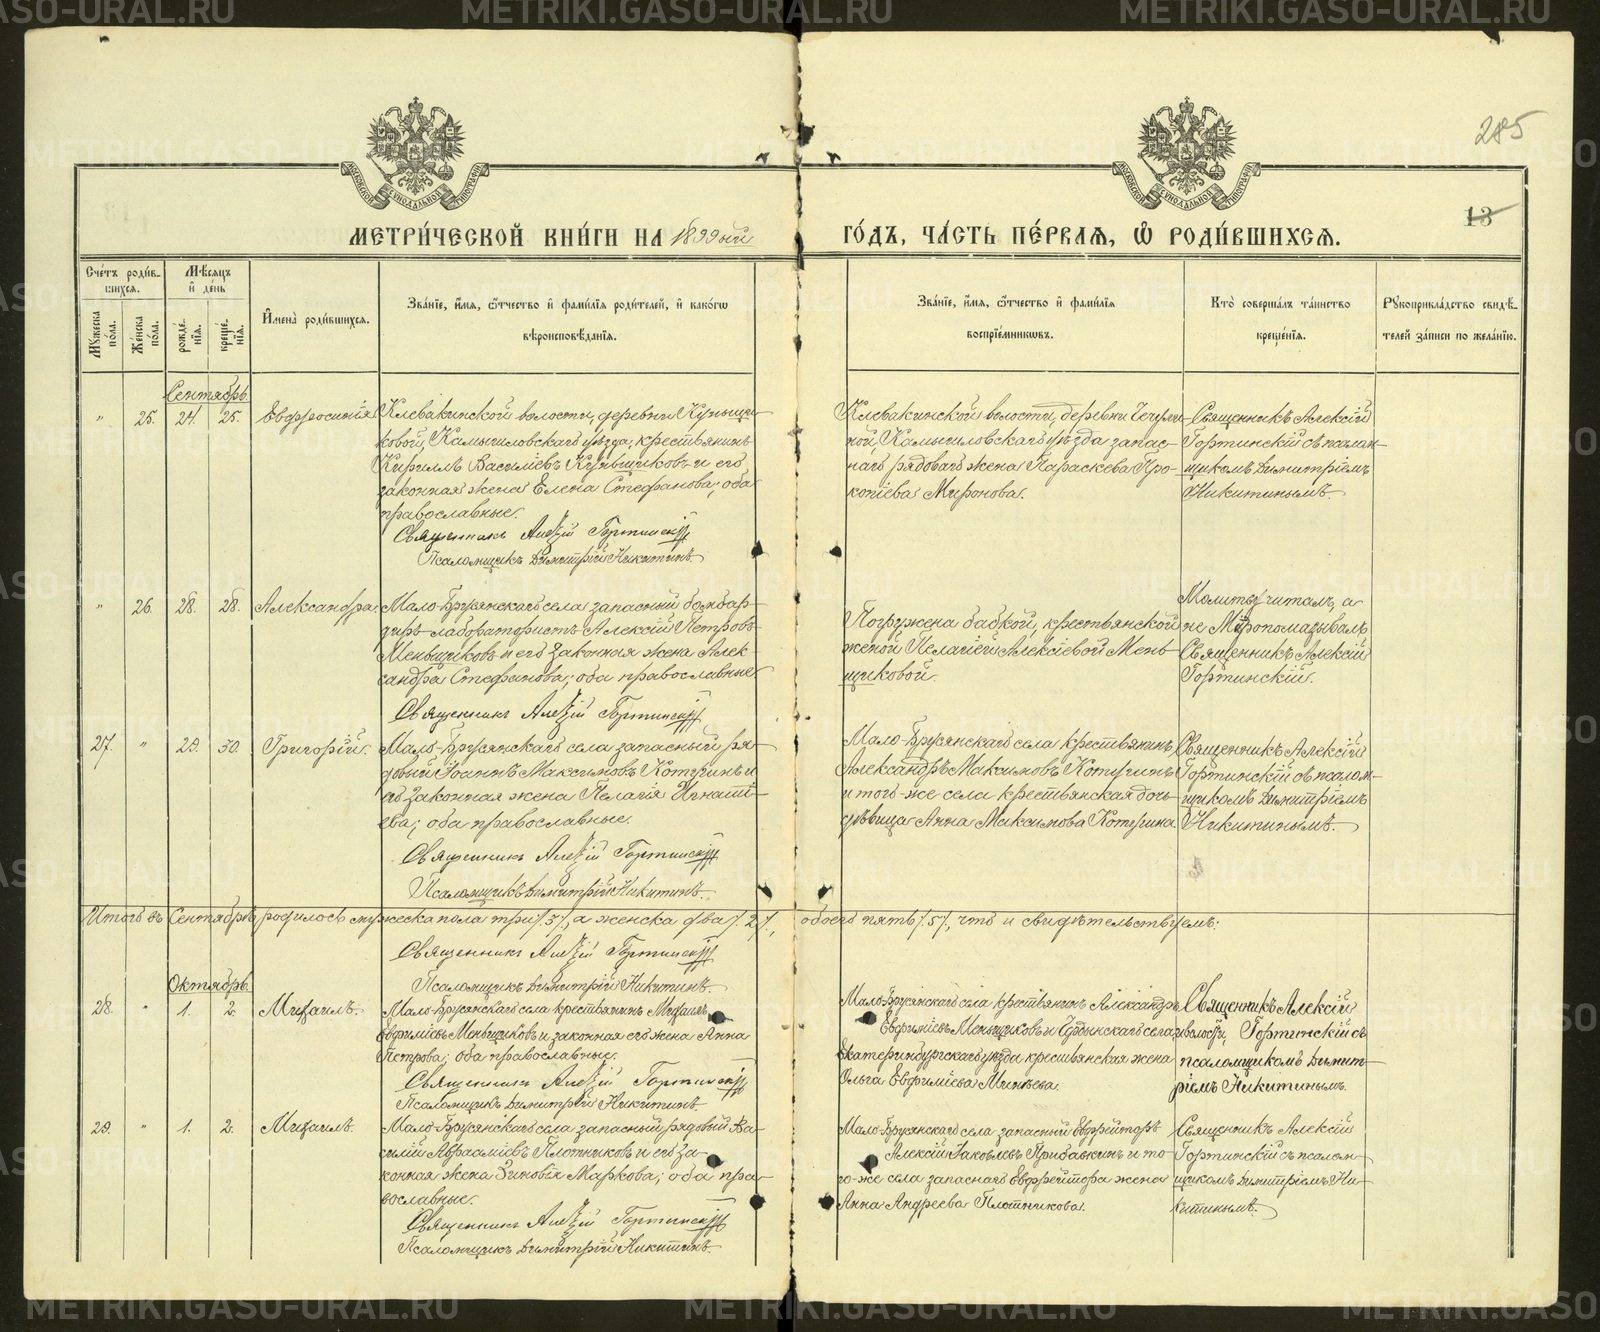 285
13
МОСКОВСКОЙ СѴНОДАЛЬНОЙ ТИПОГРАФІИ
МОСКОВСКОЙ СѴНОДАЛЬНОЙ ТИПОГРАФІИ
МЕТРИ́ЧЕСКОЙ КНИ́ГИ НА 1899ый ГО́ДЪ, ЧА́СТЬ ПЕ́РВАЯ, Ѿ РОДИ́ВШИХСЯ.
Сче́тъ роди́в-
шихся.
Му́жеска по́ла.
Же́нска по́ла.
Мѣ́сяцъ
и҆ де́нь
рожде́-
нія.
креще́-
нія.
И҆мена̀ роди́вшихся.
Зва́ніе, и҆́мя, ѻ҆́тчество и҆ фами́лія роди́телей, и҆ како́гѡ
вѣроисповѣ́данія.
Зва́ніе, и҆́мя, ѻ҆́тчество и҆ фами́лія
воспріе́мникѡвъ.
Кто̀ соверша́лъ та́инство
креще́нія.
Рукоприкла́дство свидѣ́-
телей за́писи по жела́нію.
Сентябрь
" 25. 24. 25. Евфросинія
Клевакинской волости, деревни Кривщи-
ковой, Камышловскаго уѣзда, крестьянинъ
Кириллъ Василіевъ Кривщиковъ и его
законная жена Елена Стефанова; оба
православные.
Священникъ Алексій Гортинскій
Псаломщикъ Димитрій Никитинъ.
Клевакинской волости, деревни Чечули-
ной, Камышловскаго уѣзда запас-
наго рядоваго жена Параскева Про-
копіева Миронова.
Священникъ Алексій
Гортинскій съ псалом-
щикомъ Димитріемъ
Никитинымъ.
" 26. 28. 28. Александра.
Мало-Брусянскаго села запасный бомбар-
диръ-лаборатористъ Алексій Петровъ
Меньщиковъ и его законная жена Алек-
сандра Стефанова; оба православные.
Священникъ Алексій Гортинскій
Погружена бабкой, крестьянской
женой Пелагіей Алексіевой Мень-
щиковой.
Молитву читалъ, а
не мѵропомазывалъ
Священникъ Алексій
Гортинскій.
27. " 29. 30. Григорій.
Мало-Брусянскаго села запасный ря-
довый Іоаннъ Максимовъ Котугинъ и
его законная жена Пелагія Игнаті-
ева; оба православные.
Священникъ Алексій Гортинскій
Псаломщикъ Димитрій Никитинъ.
Мало-Брусянскаго села крестьянинъ
Александръ Максимовъ Котугинъ
и того-же села крестьянская дочь
дѣвица Анна Максимова Котугина
Священникъ Алексій
Гортинскій съ псалом-
щикомъ Димитріемъ
Никитинымъ.
Итого въ Сентябрѣ родилось мужеска пола три /3/, а женска два /2/, обоего пять /5/, что и свидѣтельствуемъ:
Священникъ Алексій Гортинскій
Псаломщикъ Димитрій Никитинъ.
Октябрь
28. " 1. 2. Михаилъ.
Мало-Брусянскаго села крестьянинъ Михаилъ
Евфиміевъ Меньщиковъ и законная его жена Анна
Петрова; оба православные.
Священникъ Алексій Гортинскій
Псаломщикъ Димитрій Никитинъ
Мало-Брусянскаго села крестьянинъ Александръ
Евфиміевъ Меньщиковъ и села и волости,
Екатеринбургскаго уѣзда крестьянская жена
Ольга Евфиміева Минѣева.
Священникъ Алексій
Гортинскій съ
псаломщикомъ Димит-
ріемъ Никитинымъ.
29. " 1. 2. Михаилъ.
Мало-Брусянскаго села запасный рядовый Ва-
силій Авраамиевъ Плотниковъ и его за-
конная жена Зиновія Маркова; оба пра-
вославные.
Священникъ Алексій Гортинскій
Псаломщикъ Димитрій Никитинъ.
Мало-Брусянскаго села запасный ефрейторъ
Алексій Іаковлевъ Прибавкинъ и то-
го-же села запаснаго ефрейтора жена
Анна Андреева Плотникова.
Священникъ Алексій
Гортинскій съ псалом-
щикомъ Димитріемъ Ни-
китинымъ.
METRIKI.GASO-URAL.RU